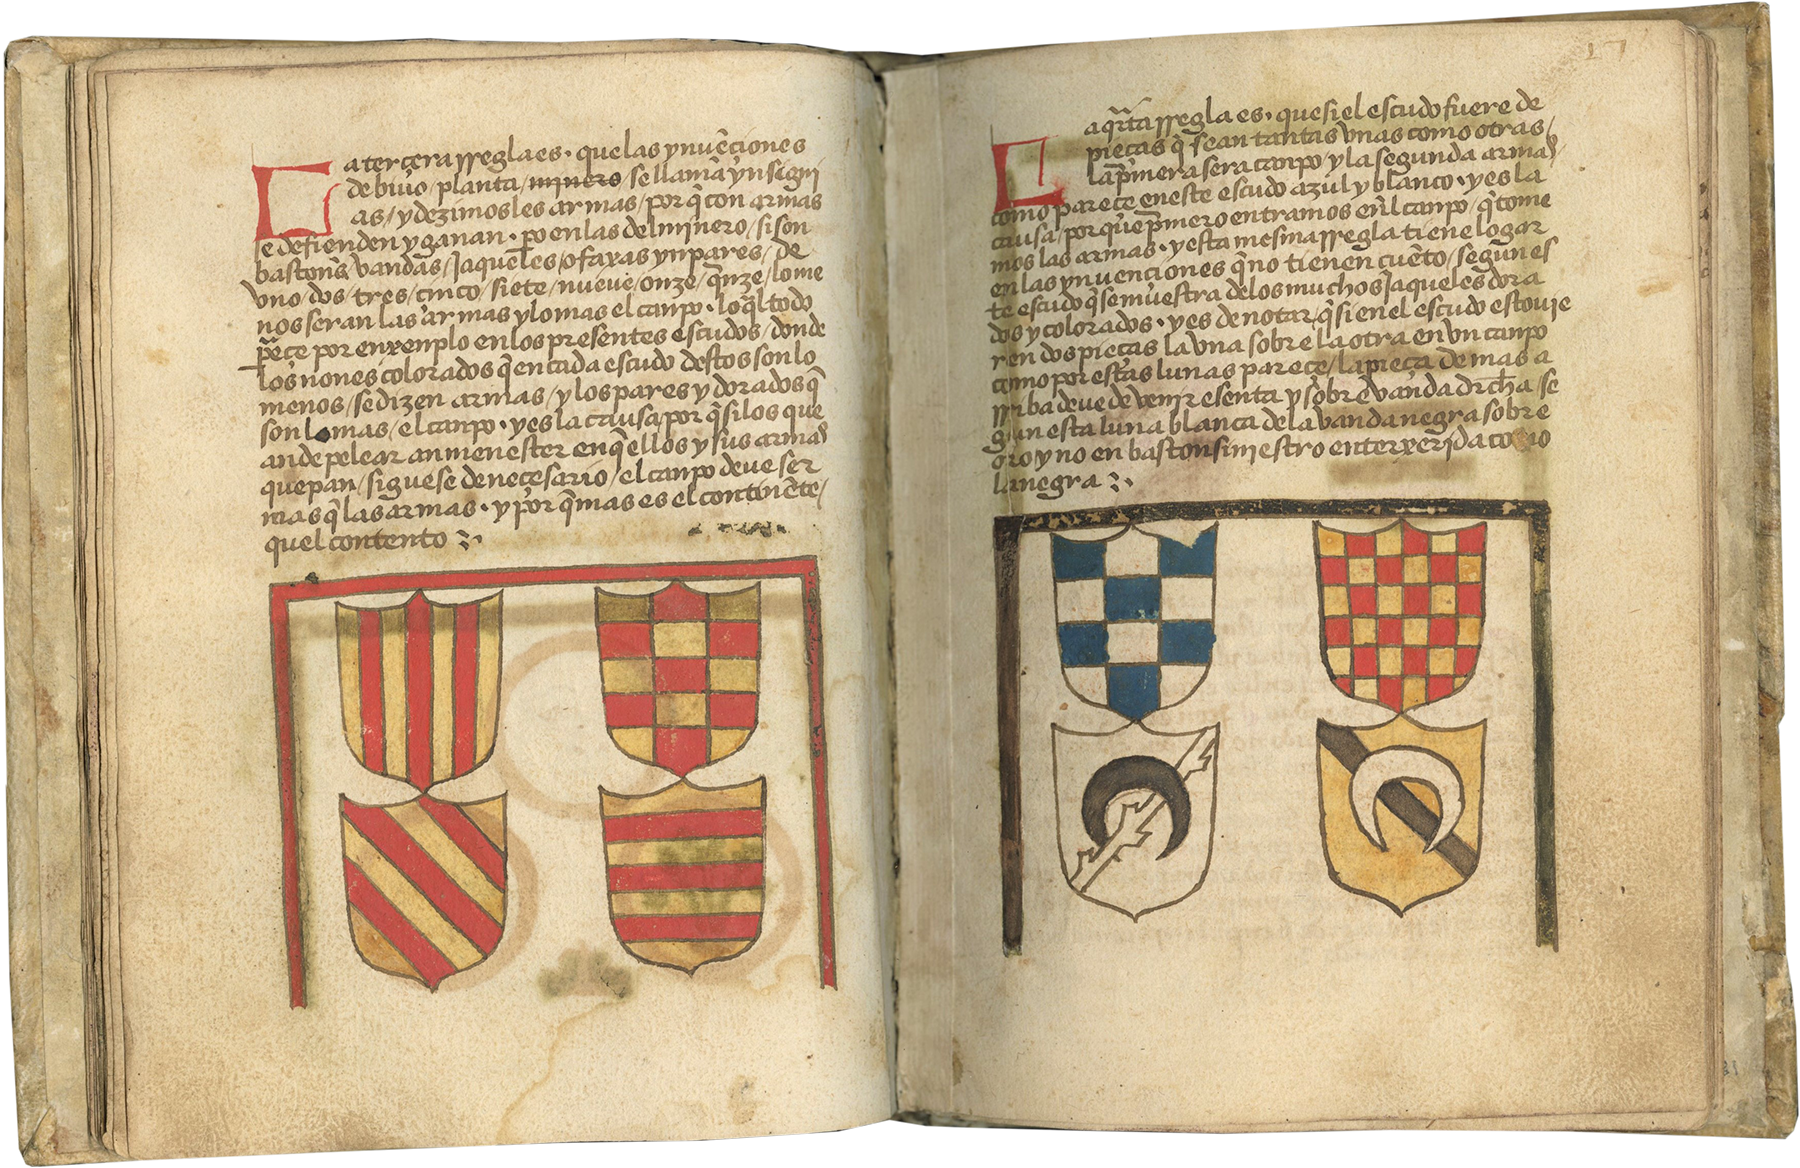 La terçera rregla es · que las ynuēciones
de biuo / planta / minero / se llamā ynsigni
as / y dezimosles armas / por q̄ con armas
se defienden y ganan · po en las del minero / si son
bastonȩs vandas / Jaqueles / o faxas ynpares / de
vno / dos / tres / cinco / siete / nueue / onze / qnze / lo me
nos seran las armas y lo mas el canpo · lo q̄l todo
pareçe por enxenplo en los presentes escudos / donde
los nones colorados q̄ en cada escudo destos son lo
menos / se dizen armas / y los pares y dorados q̄
son lo mas / el canpo · y es la causa / por q̄ si los que
an de pelear an menester en q̄ ellos y sus armas
quepan / siguese de neçesario / el canpo deue ser
mas q̄ las armas · y por q̄ mas es el continēte /
que l contento
17
La qrta rregla es · que si el escudo fuere de
pieças q̄ sean tantas vnas como otras /
la pmera sera canpo / y la segunda armas /
como pareçe en este escudo azul y blanco · y es la
causa / por que pmero entramos en l canpo / q̄ tome
mos las armas · y esta mesma rregla tiene logar
en las ynuenciones q̄ no tienen cuēto / segun es
te escudo q̄ se muestra de los muchos Jaqueles dora
dos y colorados · y es de notar q̄ si en el escudo estouie
ren dos pieças la vna sobre la otra en vn canpo
como por estas lunas pareçe / la pieça de mas a
rriba deue de venir esenta y sobre vanda drcha se
gun esta luna blanca de la vanda negra sobre
oro y no en baston siniestro enterxerida como
la negra